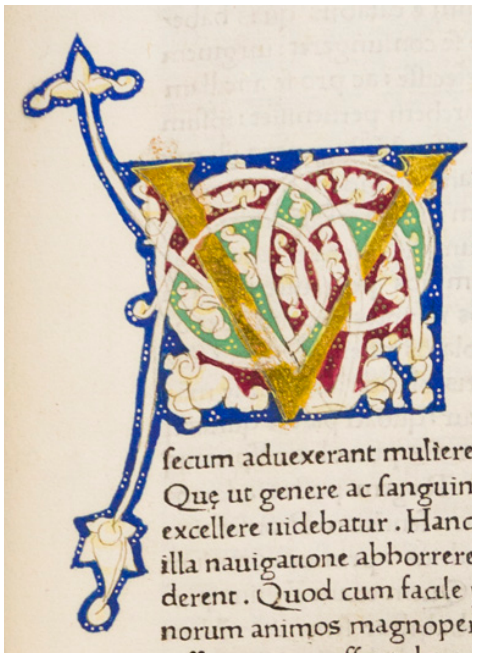 V
ſecum aduexerant muliere
Quę ut genere ac ſanguin
excellere uidebatur . Hanc
illa nauigatione abhorrere
derent . Quod cum facile
norum animos magnoper